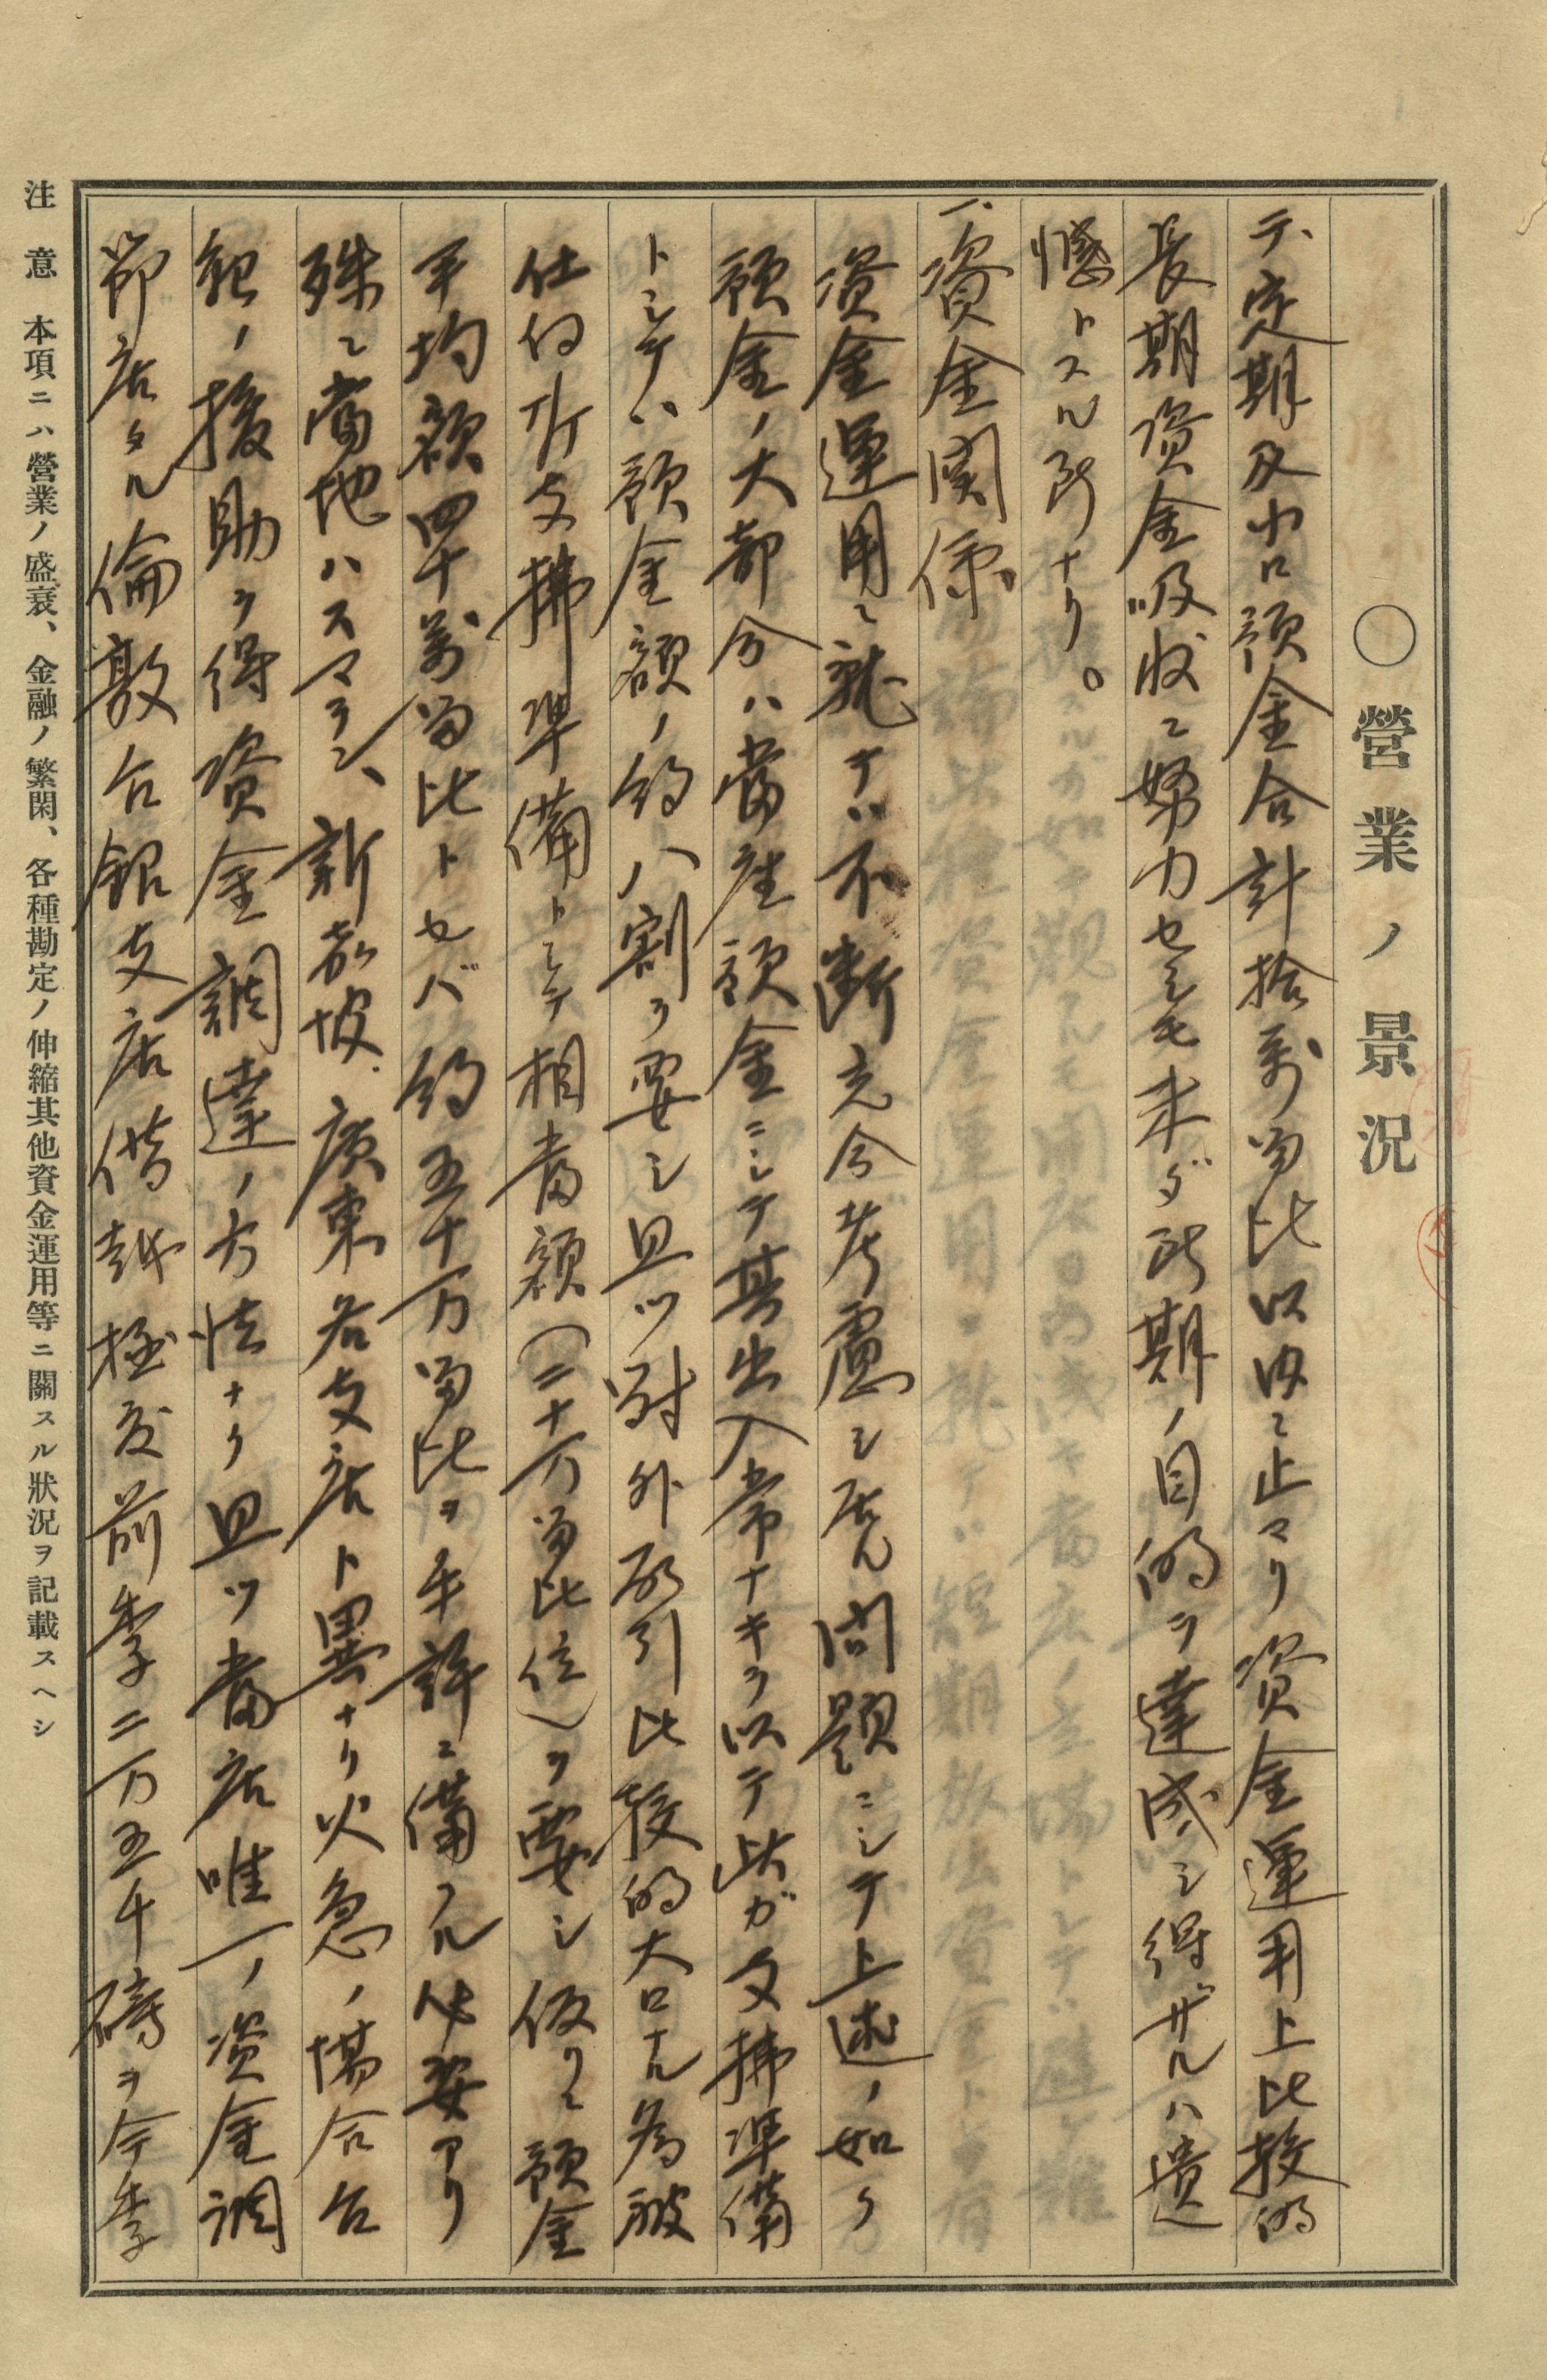 〇營業ノ景況
テ、定期及小口預金合計拾萬留比以内ニ止マリ資金運用上比較的
長期資金吸收ニ努力セシモ未ダ所期ノ目的ヲ達成シ得ザルハ遺
憾トスル所ナリ。
一、資金関係
資金運用ニ就テハ不断充分考慮シ居ル問題ニシテ上述ノ如ク
預金ノ大部分ハ當座預金ニシテ其出入常ナキヲ以テ此ガ支拂準備
トシテハ預金額ノ約八割ヲ要シ且ツ対外取引比較的大口ナル為被
仕向所支拂準備トシテ相當額(二十万留比位)ヲ要シ仮リニ預金
平均額四十萬留比トセバ約五十万留比ヲ手許ニ備フル必要アリ
殊ニ當地ハスマラン、新嘉坡、廣東各支店ト異ナリ火急ノ場合台
銀ノ援助ヲ得資金調達ノ方法ナク且ツ當店唯一ノ資金調
節店タル倫敦台銀支店借越極度前季二万五千磅ヲ今季
注意 本項ニハ營業ノ盛衰、金融ノ繁閑、各種勘定ノ伸縮其他資金運用等ニ關スル狀況ヲ記載スヘシ